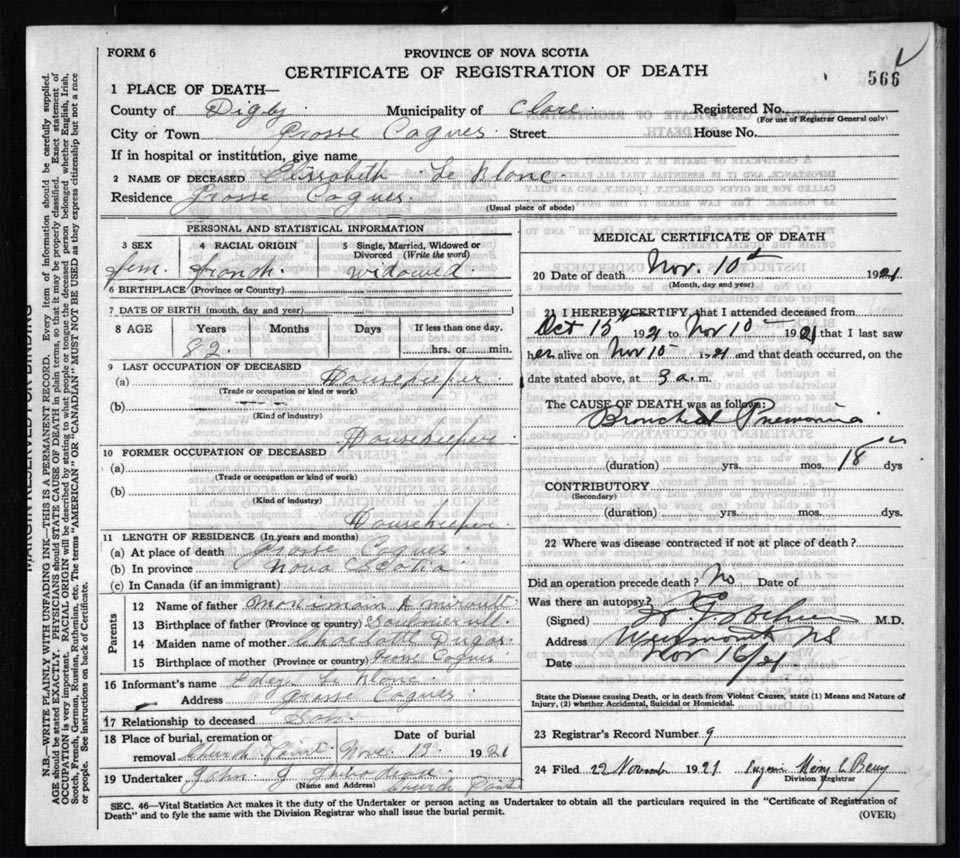 FORM 6
PROVINCE OF NOVA SCOTIA
CERTIFICATE OF REGISTRATION OF DEATH
566
1 PLACE OF DEATH—
County of Digby Municipality of Clare. Registered No.
(For use of Registrar General only)
City or Town Grosse Coques. Street House No.
If in hospital or institution, give name
2 NAME OF DECEASED Elizabeth Le Blanc.
Residence Grosse Coques.
(Usual place of abode)
PERSONAL AND STATISTICAL INFORMATION
3 SEX 4 RACIAL ORIGIN 5 Single, Married, Widowed or Divorced (Write the word)
fem. french. Widowed.
6 BIRTHPLACE (Province or Country)
7 DATE OF BIRTH (month, day, and year)
8 AGE Years Months Days If less than one day,
82. hrs. or min.
9 LAST OCCUPATION OF DECEASED
(a) Housekeeper.
(Trade or occupation or kind of work)
(b)
(Kind of industry)
Housekeeper.
10 FORMER OCCUPATION OF DECEASED
(a)
(Trade or occupation or kind of work)
(b)
(Kind of industry)
Housekeeper.
11 LENGTH OF RESIDENCE (In years and months)
(a) At place of death Grosse Coques.
(b) In province Nova Scotia
(c) In Canada (if an immigrant)
Parents
12 Name of father
13 Birthplace of father (Province or country) Saulnierville.
14 Maiden name of mother Charlotte Dugas.
15 Birthplace of mother (Province or country) Coques.
16 Informant's name Le Blanc.
Address Grosse Coques.
17 Relationship to deceased Son.
18 Place of burial, cremation or removal Date of burial
Church Point. Nov. 13 1921
19 Undertaker John J Thibodeau.
(Name and Address) Church Point
MEDICAL CERTIFICATE OF DEATH
20 Date of death Nov. 10th 1921
(Month, day and year)
21 I HEREBY CERTIFY, that I attended deceased from
Oct 15th 1921 to Nov 10th 1921 that I last saw
her alive on Nov 10th 1921 and that death occurred, on the
date stated above, at 3 a.m.
The CAUSE OF DEATH was as follows:
Bronchial Pnemonia
(duration) yrs. mos. 18 dys
CONTRIBUTORY
(Secondary)
(duration) yrs. mos. dys
22 Where was disease contracted if not at place of death?
Did an operation precede death? No Date of
Was there an autopsy? No
(Signed) M.D.
Address Weymouth NS
Date Nov 16/21
State the Disease causing Death, or in death from Violent Causes, state (1) Means and Nature of
Injury, (2) whether Accidental, Suicidal or Homicidal.
23 Registrar's Record Number 9
24 Filed 22 November 1921
Division Registrar
SEC. 46—Vital Statistics Act makes it the duty of the Undertaker or person acting as Undertaker to obtain all the particulars required in the "Certificate of Registration of
Death" and to fyle the same with the Division Registrar who shall issue the burial permit.
(OVER)
MARGIN RESERVED FOR BINDING
N.B.—WRITE PLAINLY WITH UNFADING INK—THIS IS A PERMANENT RECORD. Every item of information should be carefully supplied.
AGE should be stated EXACTLY. PHYSICIANS should STATE CAUSE OF DEATH in plain terms, so that it may be properly classified. Exact statement of
OCCUPATION is very important. RACIAL ORIGIN will be described by stating to what people or tongue the deceased person belonged whether English, Irish,
Scotch, French, German, Russian, Ruthenian, etc. The terms "AMERICAN" OR "CANADIAN" MUST NOT BE USED as they express citizenship but not a race
or people. See instructions on back of Certificate.